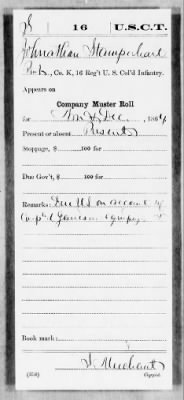 S | 16 | U.S.C.T.
Johnathan Stamperhart
Pvt., Co. K, 16 Reg't U. S. Col'd Infantry.
Appears on
Company Muster Roll
for Nov & Dec, 1864
Present or absent Present
Stoppage, $ 100 for
Due Gov't, $ 100 for
Remarks: Due U.S on account of
Book mark:
(358) Copyist.